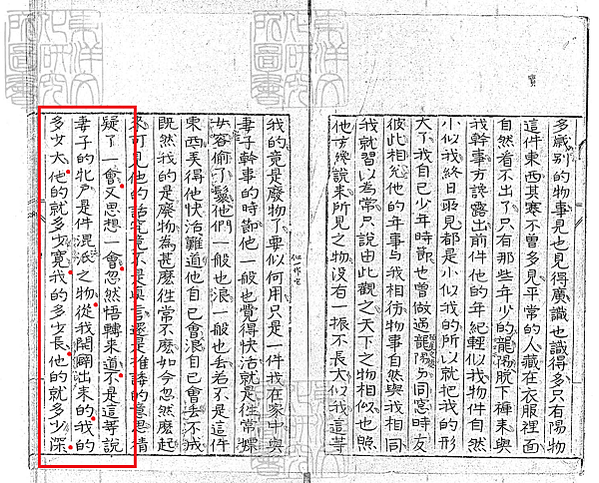 多歲别的物事見也見得廣識也識得多只有陽物
這件東西其寒不曾多見平常的人藏在衣服裡面
自然看不出了只有那些年少的龍陽脫下褲來與
我幹事方纔露出前件他的年紀輕似我物件自然
小似我終日所見都是小似我的所以就把我的形
大了我自己少年時節也曾做過龍陽同窓時友
彼此相兌他的年事與我相彷物事自然與我相同
我就習以為常只說由此觀之天下之物相似也照
他方纔說來所見之物没有一振不長大似我這等
我的竟是廢物了要似何用只是一件我在家中與
妻子幹事的時節他一般也覺得快活就是往常嫖
女客偷丫鬟他們一般也浪一般也丟若不是這件
東西弄得他快活難道他自己會浪自己會丟不成
既然我的是廢物為甚麽往常不廢如今忽然廢起
來可見他的話究竟不是真言還是推誇的意思猜
疑了一會又思想一會忽然悟轉來道不是這等說
妻子的牝戶是件混沌之物從我開闢出來的我的
多少大他的就多少寬我的多少長他的就多少深